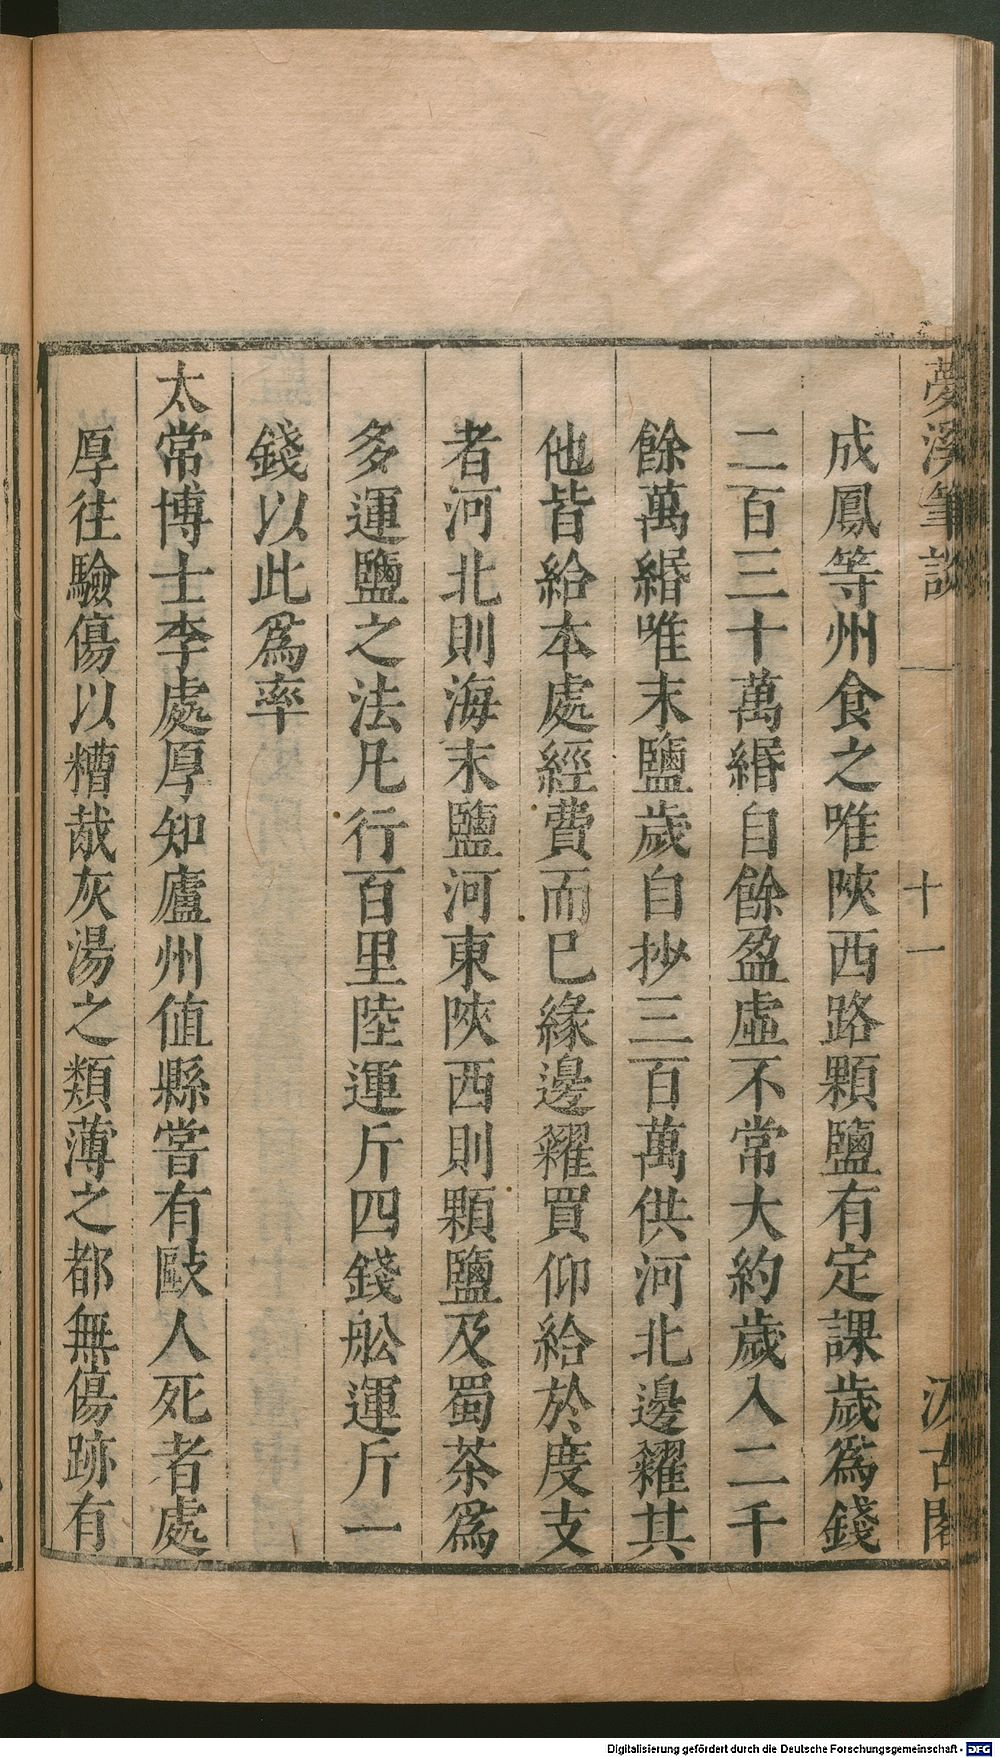 夢溪筆談 十一 汲古閣
成鳳等州食之唯陝西路顆鹽有定課歲爲錢
二百三十萬緡自餘盈虛不常大約歲入二千
餘萬緡唯末鹽歲自抄三百萬供河北邊糴其
他皆給本處經費而巳緣邊糴買仰給於度支
者河北則海末鹽河東陝西則顆鹽及蜀茶爲
多運鹽之法凡行百里陸運斤四錢舩運斤一
錢以此爲率
太常博士李處厚知廬州値縣嘗有毆人死者處
厚往驗傷以糟胾灰湯之類薄之都無傷跡有
Digitalisierung gefördert durch die Deutsche Forschungsgemeinschaft - DFG